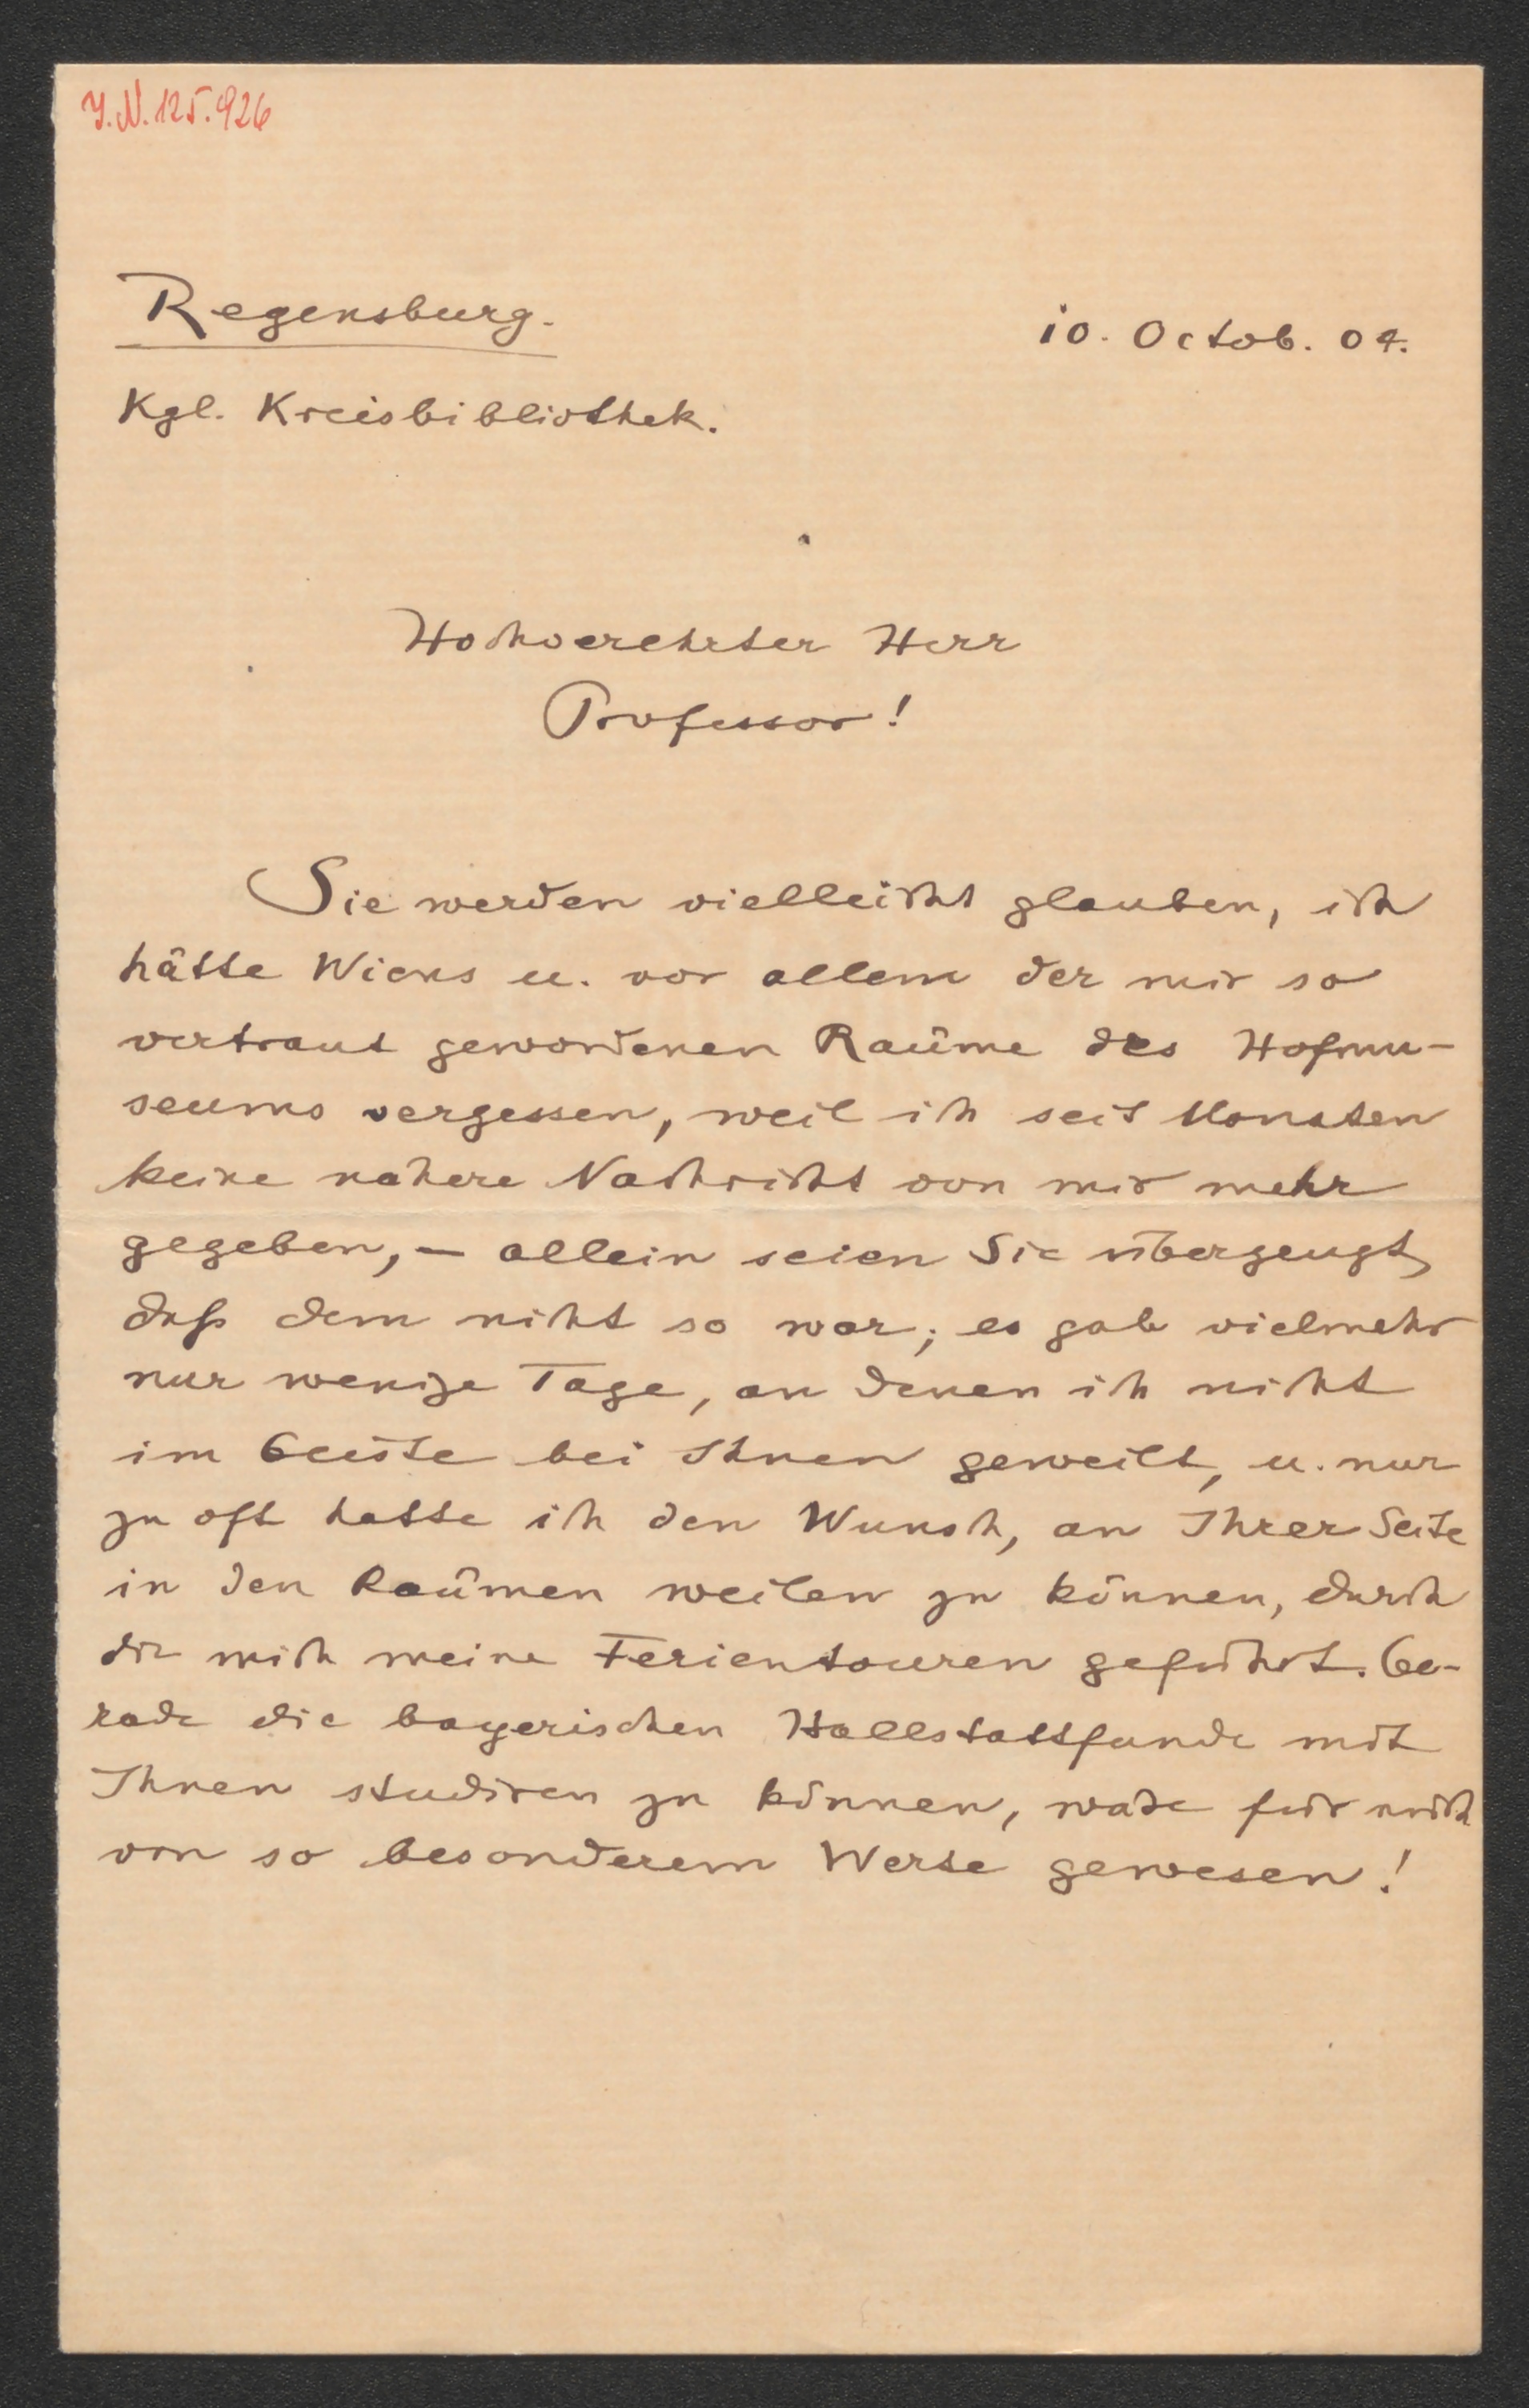 J.N. 125.926
Regensburg.
10. Octob. 04.
Kgl. Kreisbibliothek.
Hochverehrter Herr
Professor!
Sie werden vielleicht glauben, ich
hätte Wiens u. vor allem der mir so
vertraut gewordenen Räume des Hofmu-
seums vergessen, weil ich seit Monaten
keine nähere Nachricht von mir mehr
gegeben, – allein seien Sie überzeugt,
daß dem nicht so war; es gab vielmehr
nur wenige Tage, an denen ich nicht
im Geiste bei Ihnen geweilt, u. nur
zu oft hatte ich den Wunsch, an Ihrer Seite
in den Räumen weilen zu können, durch
die mich meine Ferientouren geführt. Ge-
rade die bayerischen Hallstattfunde mit
Ihnen studiren zu können, wäre für mich
von so besonderem Werte gewesen!